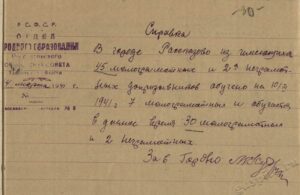 -30-
Р.С.Ф.С.Р.
ОТДЕЛ
РОДНОГО ОБРАЗОВАНИЯ
4 марта 1941 г.
№
Справка
В городе Рассказово из имеющихся
45 малограмотных и 23 неграмот-
ных допризывников обучено на 10/II
1941 г. 7 малограмотных и обучается
в данное время 30 малограмотных
и 2 неграмотных.
Зав Гороно